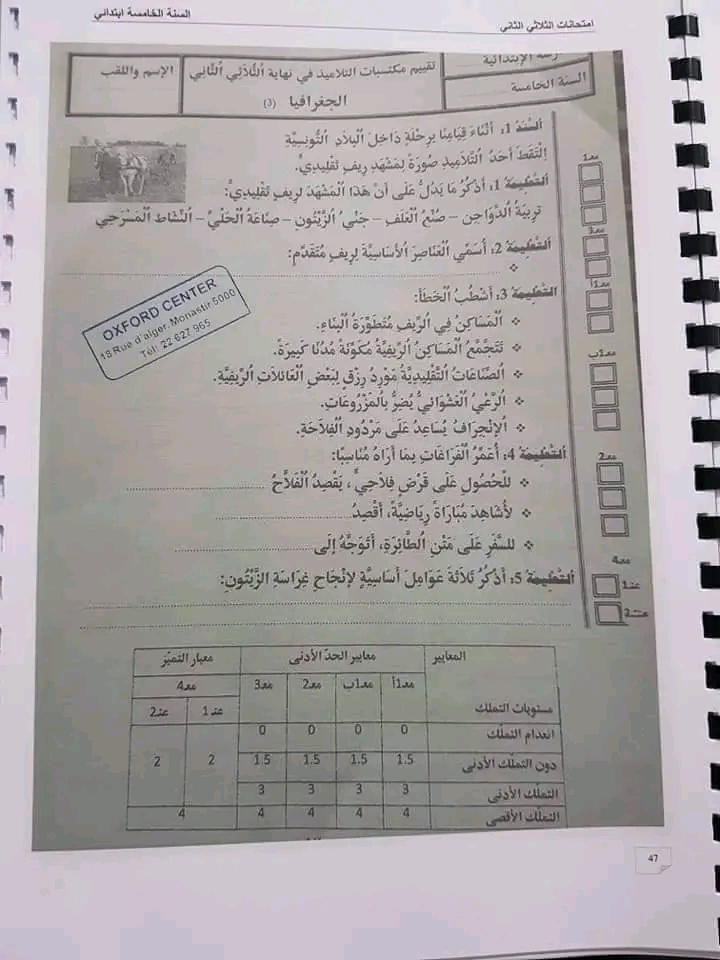 امتحانات الثلاثي الثاني
السنة الخامسة ابتدائي
الإبتدائية
السنة الخامسة
تقييم مكتسبات التلاميذ في نهاية الثّلاثي الثّاني
الجغرافيا (3)
الإسم واللقب
السند 1: أَثْنَاءَ قِيَامِنَا بِرِحْلَةٍ دَاخِلَ الْبِلَادِ التُّونِسِيَّةِ
اِلْتَقَطَ أَحَدُ التَّلَامِيذِ صُورَةً لِمَشْهَدِ رِيفٍ تَقْلِيدِيٍّ.
التعليمة 1: أَذْكُرُ مَا يَدُلُّ عَلَى أَنَّ هَذَا الْمَشْهَدَ لِرِيفٍ تَقْلِيدِيٍّ:
تَرْبِيَةُ الدَّوَاجِنِ – صُنْعُ الْعَلَفِ – جَنْيُ الزَّيْتُونِ – صِنَاعَةُ الْحُلِيِّ – النَّشَاطُ الْمَسْرَحِي
التعليمة 2: أُسَمِّي الْعَنَاصِرَ الْأَسَاسِيَّةَ لِرِيفٍ مُتَقَدِّمٍ:
❖ ........................
التعليمة 3: أَشْطُبُ الْخَطَأَ:
❖ الْمَسَاكِنُ فِي الرِّيفِ مُتَطَوِّرَةُ الْبِنَاءِ.
❖ تَتَجَمَّعُ الْمَسَاكِنُ الرِّيفِيَّةُ مُكَوِّنَةً مُدُنًا كَبِيرَةً.
❖ الصِّنَاعَاتُ التَّقْلِيدِيَّةُ مَوْرِدُ رِزْقٍ لِبَعْضِ الْعَائِلَاتِ الرِّيفِيَّةِ.
❖ الرَّعْيُ الْعَشْوَائِيُّ يُضِرُّ بِالْمَزْرُوعَاتِ.
❖ الْاِنْجِرَافُ يُسَاعِدُ عَلَى مَرْدُودِ الْفِلَاحَةِ.
التعليمة 4: أُعَمِّرُ الْفَرَاغَاتِ بِمَا أَرَاهُ مُنَاسِبًا:
❖ لِلْحُصُولِ عَلَى قَرْضٍ فِلَاحِيٍّ، يَقْصِدُ الْفَلَّاحُ ........................
❖ لِأُشَاهِدَ مُبَارَاةً رِيَاضِيَّةً، أَقْصِدُ ........................
❖ لِلسَّفَرِ عَلَى مَتْنِ الطَّائِرَةِ، أَتَوَجَّهُ إِلَى ........................
التعليمة 5: أَذْكُرُ ثَلَاثَةَ عَوَامِلَ أَسَاسِيَّةٍ لِإِنْجَاحِ غِرَاسَةِ الزَّيْتُونِ:
مع3
مع1أ
مع1ب
مع2
مع4
عنـ1
عنـ2
OXFORD CENTER
18 Rue d'alger, Monastir 5000
Tél: 22 627 965
المعايير معايير الحدّ الأدنى معيار التميّز
مع1أ مع1ب مع2 مع3 مع4
مستويات التملك عنـ1 عنـ2
انعدام التملّك 0 0 0 0
دون التملّك الأدنى 1.5 1.5 1.5 1.5 2 2
التملّك الأدنى 3 3 3 3
التملّك الأقصى 4 4 4 4 4
47